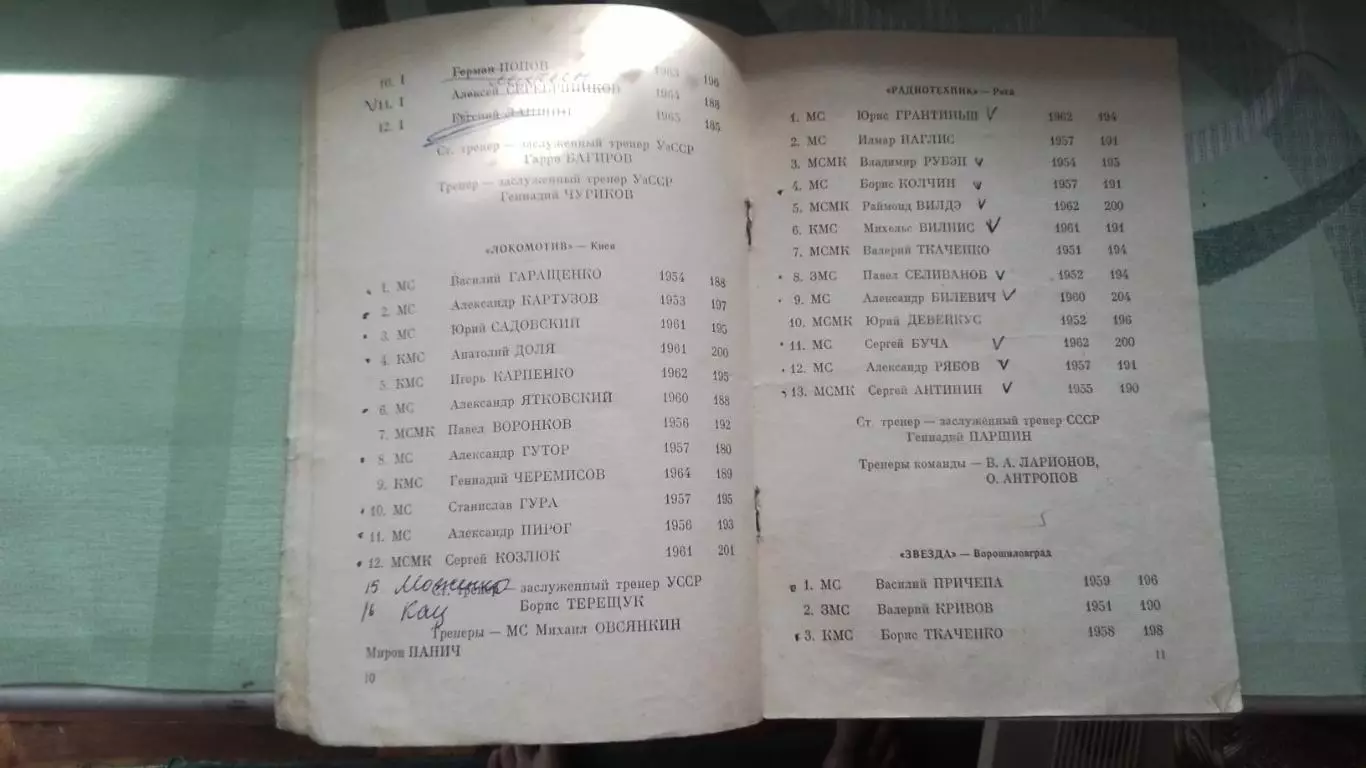 10. I Герман ПОПОВ 1963 196
11. I Алексей СЕРЕБРЯНИКОВ 1964 188
12. I Евгений 1965 185
Ст. тренер — заслуженный тренер УзССР
Гарри БАГИРОВ
Тренер — заслуженный тренер УзССР
Геннадий ЧУРИКОВ
«ЛОКОМОТИВ» — Киев
1. МС Василий ГАРАЩЕНКО 1954 188
2. МС Александр КАРТУЗОВ 1953 197
3. МС Юрий САДОВСКИЙ 1961 195
4. КМС Анатолий ДОЛЯ 1961 200
5. КМС Игорь КАРПЕНКО 1962 195
6. МС Александр ЯТКОВСКИЙ 1960 188
7. МСМК Павел ВОРОНКОВ 1956 192
8. МС Александр ГУТОР 1957 180
9. КМС Геннадий ЧЕРЕМИСОВ 1964 189
10. МС Станислав ГУРА 1957 195
11. МС Александр ПИРОГ 1956 193
12. МСМК Сергей КОЗЛЮК 1961 201
15
Ст. тренер — заслуженный тренер УССР
16 Кац
Борис ТЕРЕЩУК
Тренеры — МС Михаил ОВСЯНКИН
Мирон ПАНИЧ
10
«РАДИОТЕХНИК» — Рига
1. МС Юрис ГРАНТИНЬШ 1962 194
2. МС Илмар НАГЛИС 1957 191
3. МСМК Владимир РУБЭН 1954 195
4. МС Борис КОЛЧИН 1957 191
5. МСМК Раймонд ВИЛДЭ 1962 200
6. КМС Михельс ВИЛНИС 1961 191
7. МСМК Валерий ТКАЧЕНКО 1951 194
8. ЗМС Павел СЕЛИВАНОВ 1952 194
9. МС Александр БИЛЕВИЧ 1960 204
10. МСМК Юрий ДЕВЕЙКУС 1952 196
11. МС Сергей БУЧА 1962 200
12. МС Александр РЯБОВ 1957 191
13. МСМК Сергей АНТИПИН 1955 190
Ст. тренер — заслуженный тренер СССР
Геннадий ПАРШИН
Тренеры команды — В. А. ЛАРИОНОВ,
О. АНТРОПОВ
«ЗВЕЗДА» — Ворошиловград
1. МС Василий ПРИЧЕПА 1959 196
2. ЗМС Валерий КРИВОВ 1951 190
3. КМС Борис ТКАЧЕНКО 1958 198
11